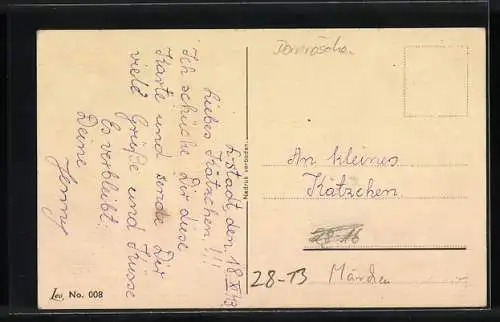 Lustadt, den 18. XI. 13.
Liebes Kätzchen!!!
Ich schicke Dir diese
Karte und sende Dir
viele Grüße und Küsse
Es verbleibt:
Deine
Jenny
Nachdruck verboten.
Leo No. 008
Dornrösche.
An kleines
Kätzchen.
28-16
28-13
Märchen